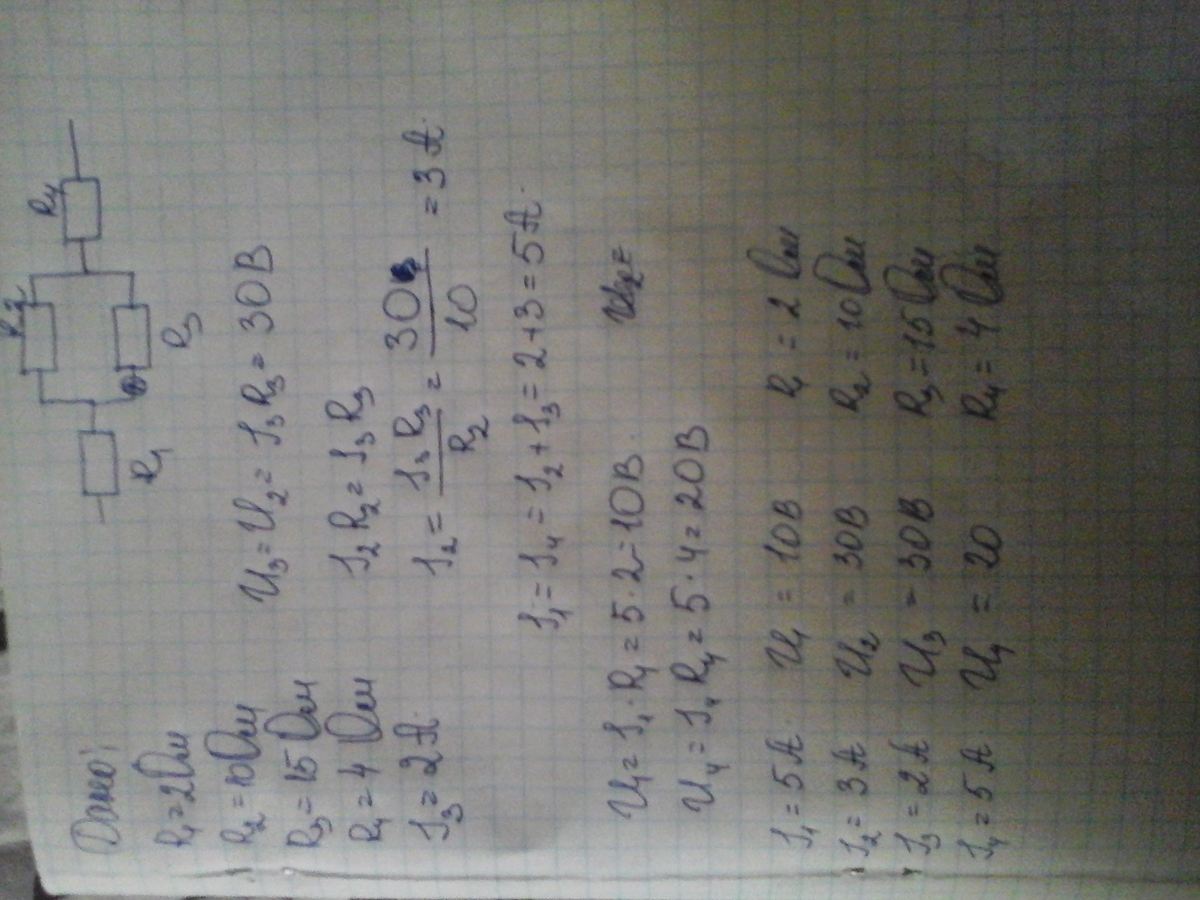 Дано:
R₁ = 2 Ом
R₂ = 10 Ом
R₃ = 15 Ом
R₄ = 4 Ом
I₃ = 2 А.
R₁
R₂
R₃
R₄
U₃ = U₂ = I₃ R₃ = 30 В
I₂ R₂ = I₃ R₃
I₂ = I₃ R₃ / R₂ = 30 / 10 = 3 А.
I₁ = I₄ = I₂ + I₃ = 2 + 3 = 5 А.
U₁ = I₁ · R₁ = 5 · 2 = 10 В.
U₄ = I₄ R₄ = 5 · 4 = 20 В
I₁ = 5 А. U₁ = 10 В R₁ = 2 Ом
I₂ = 3 А U₂ = 30 В R₂ = 10 Ом
I₃ = 2 А U₃ = 30 В R₃ = 15 Ом
I₄ = 5 А U₄ = 20 R₄ = 4 Ом